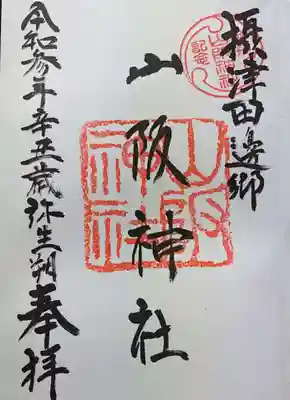 摂津田邊郷
山阪神社
令和参年辛丑歳弥生朔
奉拝
山阪神社